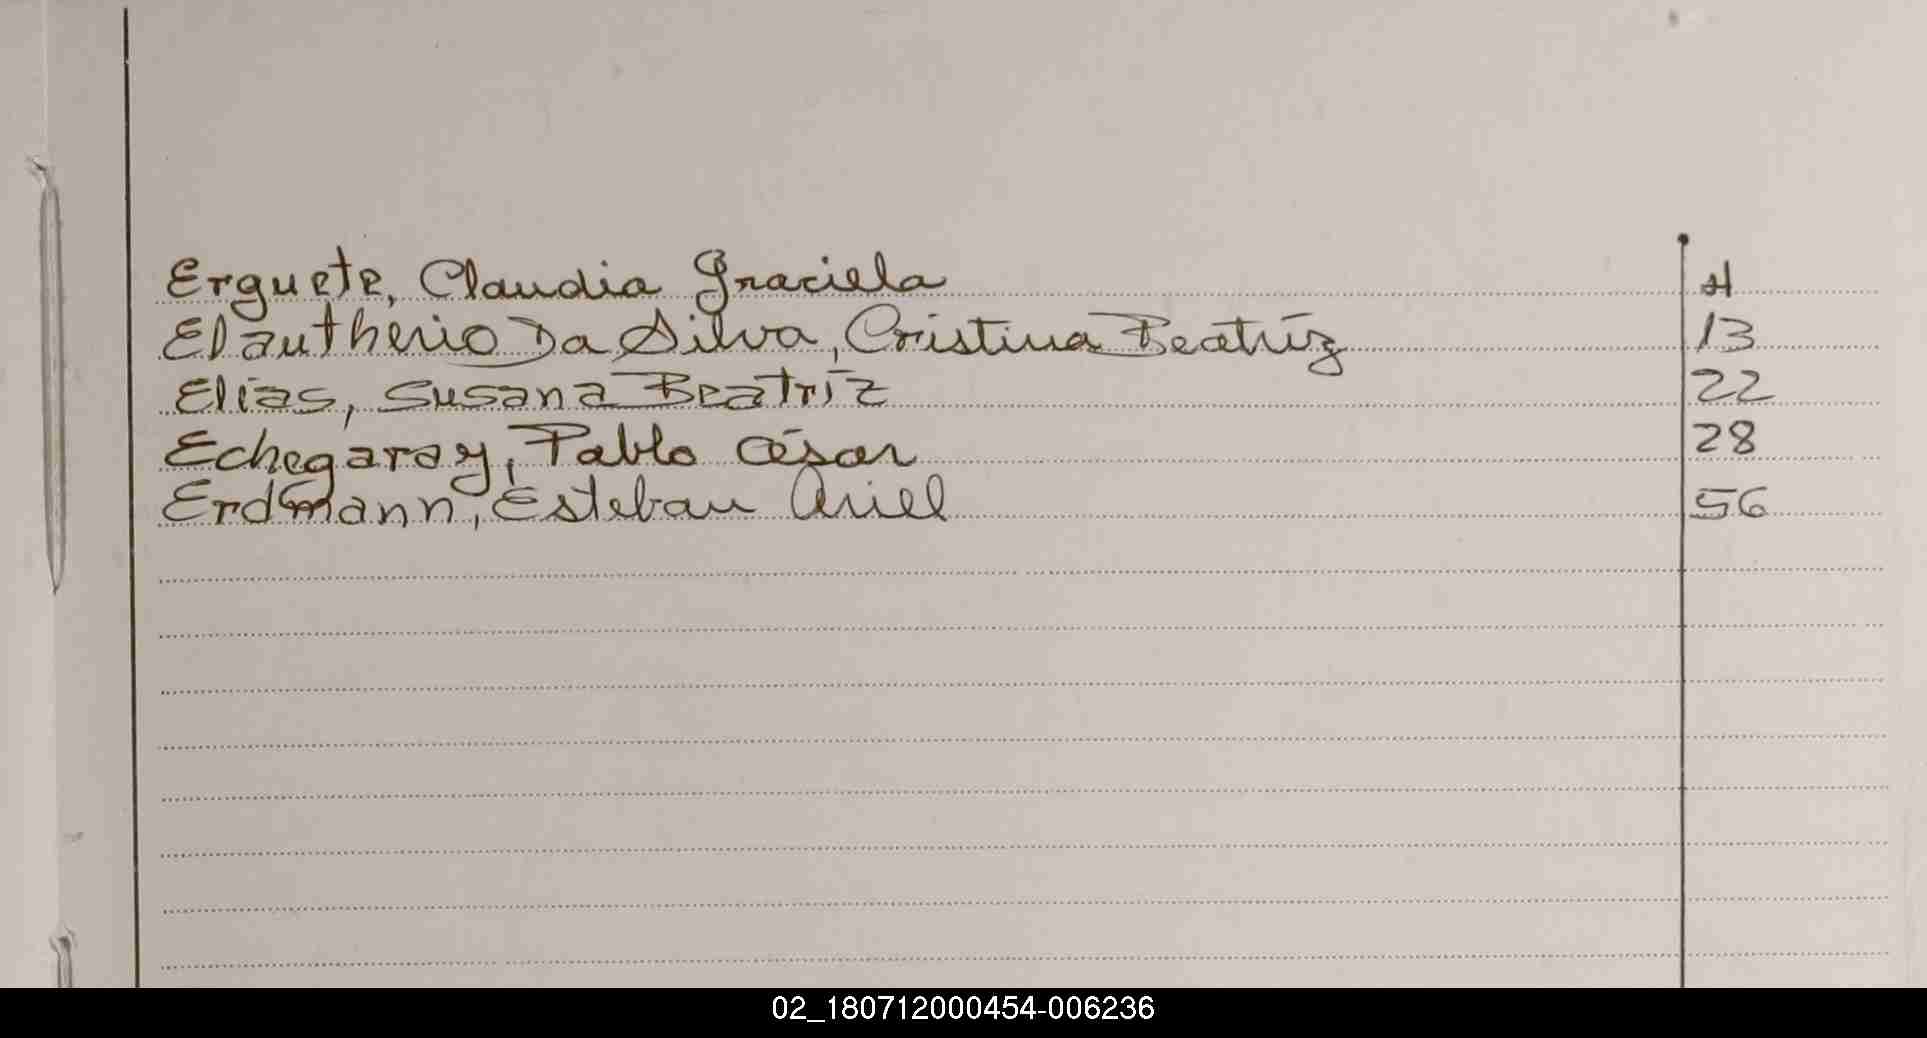 Erguete, Claudia Graciela
Elautherio Da Silva, Cristina Beatriz 13
Elías, Susana Beatríz 22
Echegaray, Pablo César 28
Erdmann, Esteban Ariel 56
02_180712000454-006236